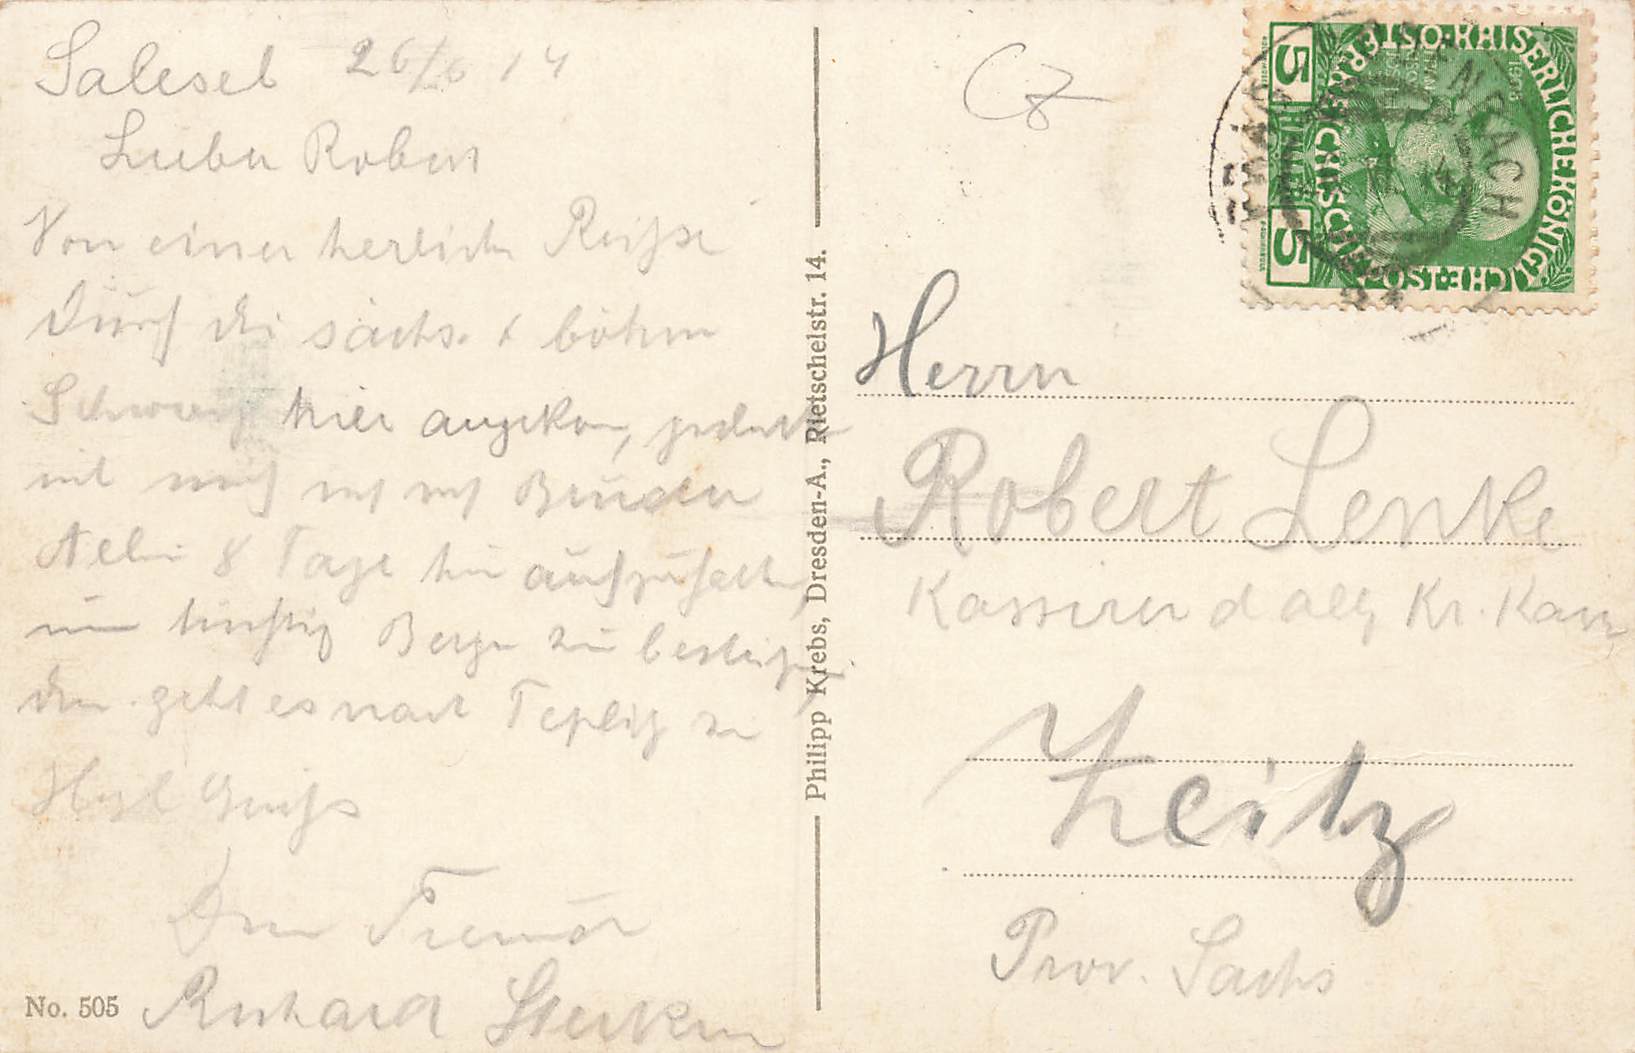 Salesel 26/6 14
Lieber Robert
Von einer herlichen Reihse
durch die sächs. & böhm
Schweiz hier angekom, gedenke
mit mich
8 Tage hier aufzuhalten
um tüchtig Berge zu besteigen
dan geht es nach Teplitz zu
Herzl Gruhs
Dein Freund
Richard
No. 505
Philipp Krebs, Dresden-A., Rietschelstr. 14.
Cz
5 5
KAISERLICHE KÖNIGLICHE ÖSTERREICHISCHE POST
1908
Herrn
Robert Lenke
Kassierer d allg Kr. Kass
Zeitz
Prov. Sachs